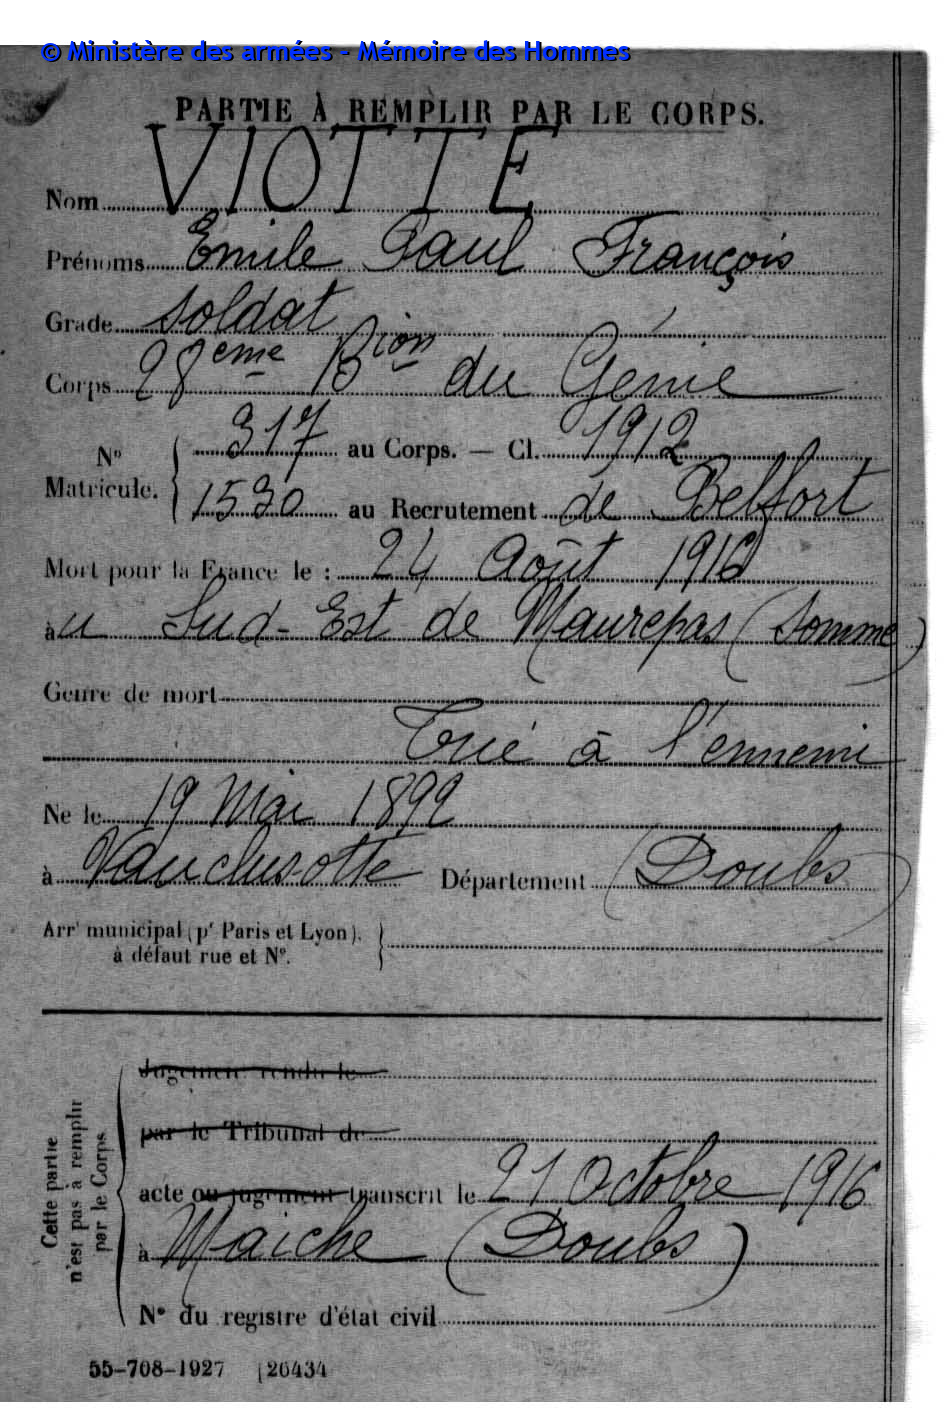 © Ministère des armées - Mémoire des Hommes
PARTIE À REMPLIR PAR LE CORPS.
Nom VIOTTE
Prénoms Emile Paul François
Grade Soldat
Corps 28ème Bion du Génie
N° Matricule. 317 au Corps. — Cl. 1912
1530 au Recrutement de Belfort
Mort pour la France le : 24 Août 1916
àu Sud-Est de Maurepas (Somme)
Genre de mort
Tué à l'ennemi
Né le 19 Mai 1892
à Vauclusotte Département (Doubs)
Arrt municipal (pr Paris et Lyon),
à défaut rue et N°.
Cette partie
n'est pas à remplir
par le Corps
Jugement rendu le
par le Tribunal de
acte ou jugement transcrit le 21 Octobre 1916
à Maiche (Doubs)
N° du registre d'état civil
55-708-1927 [26434